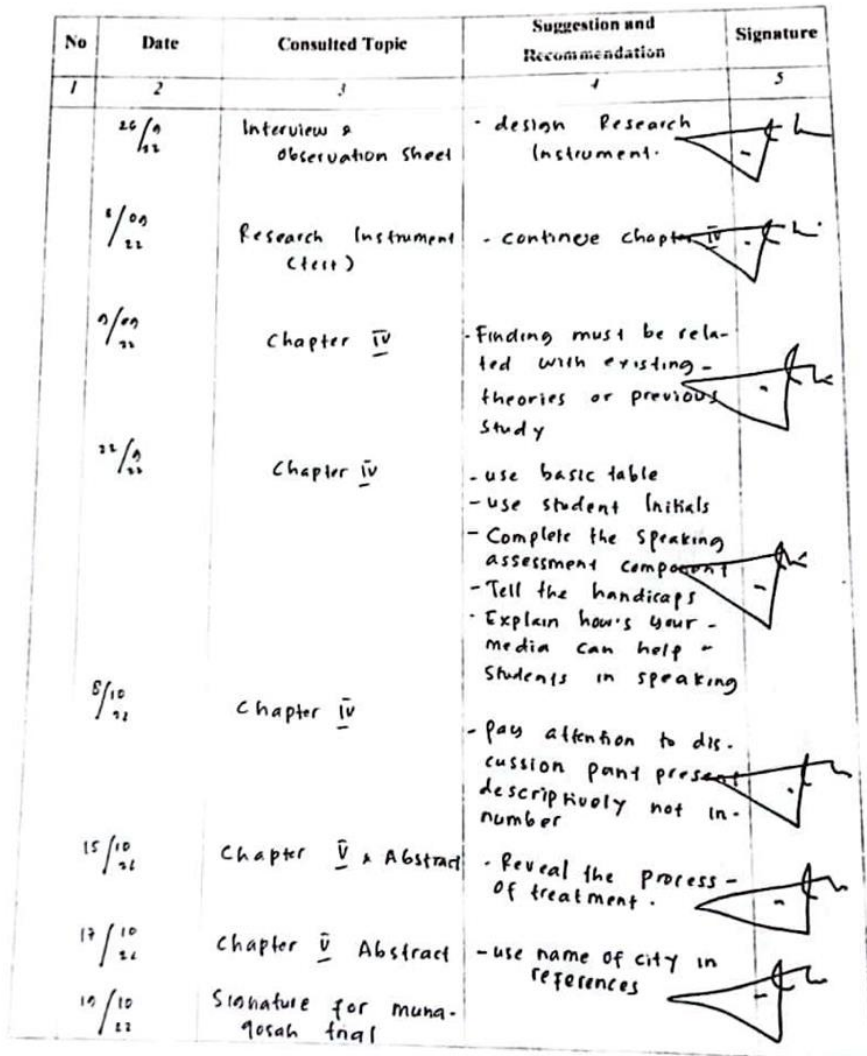 No Date Consulted Topic Suggestion and Recommendation Signature
1 2 3 4 5
26/9/22 Interview & - design Research
observation sheet Instrument.
8/09/22 Research Instrument - continue chapter IV
(test)
9/09/22 Chapter IV - Finding must be rela-
ted with existing -
theories or previous
study
22/9/22 Chapter IV - use basic table
- use student Initials
- Complete the speaking
assessment component
- Tell the handicaps
- Explain how's your -
media can help -
Students in speaking
8/10 Chapter IV
- pay attention to dis-
cussion pant present
descriptively not in-
number
15/10 Chapter V & Abstract - Reveal the process -
of treatment.
17/10 Chapter V Abstract - use name of city in
references
19/10/22 Signature for muna-
qosah trial